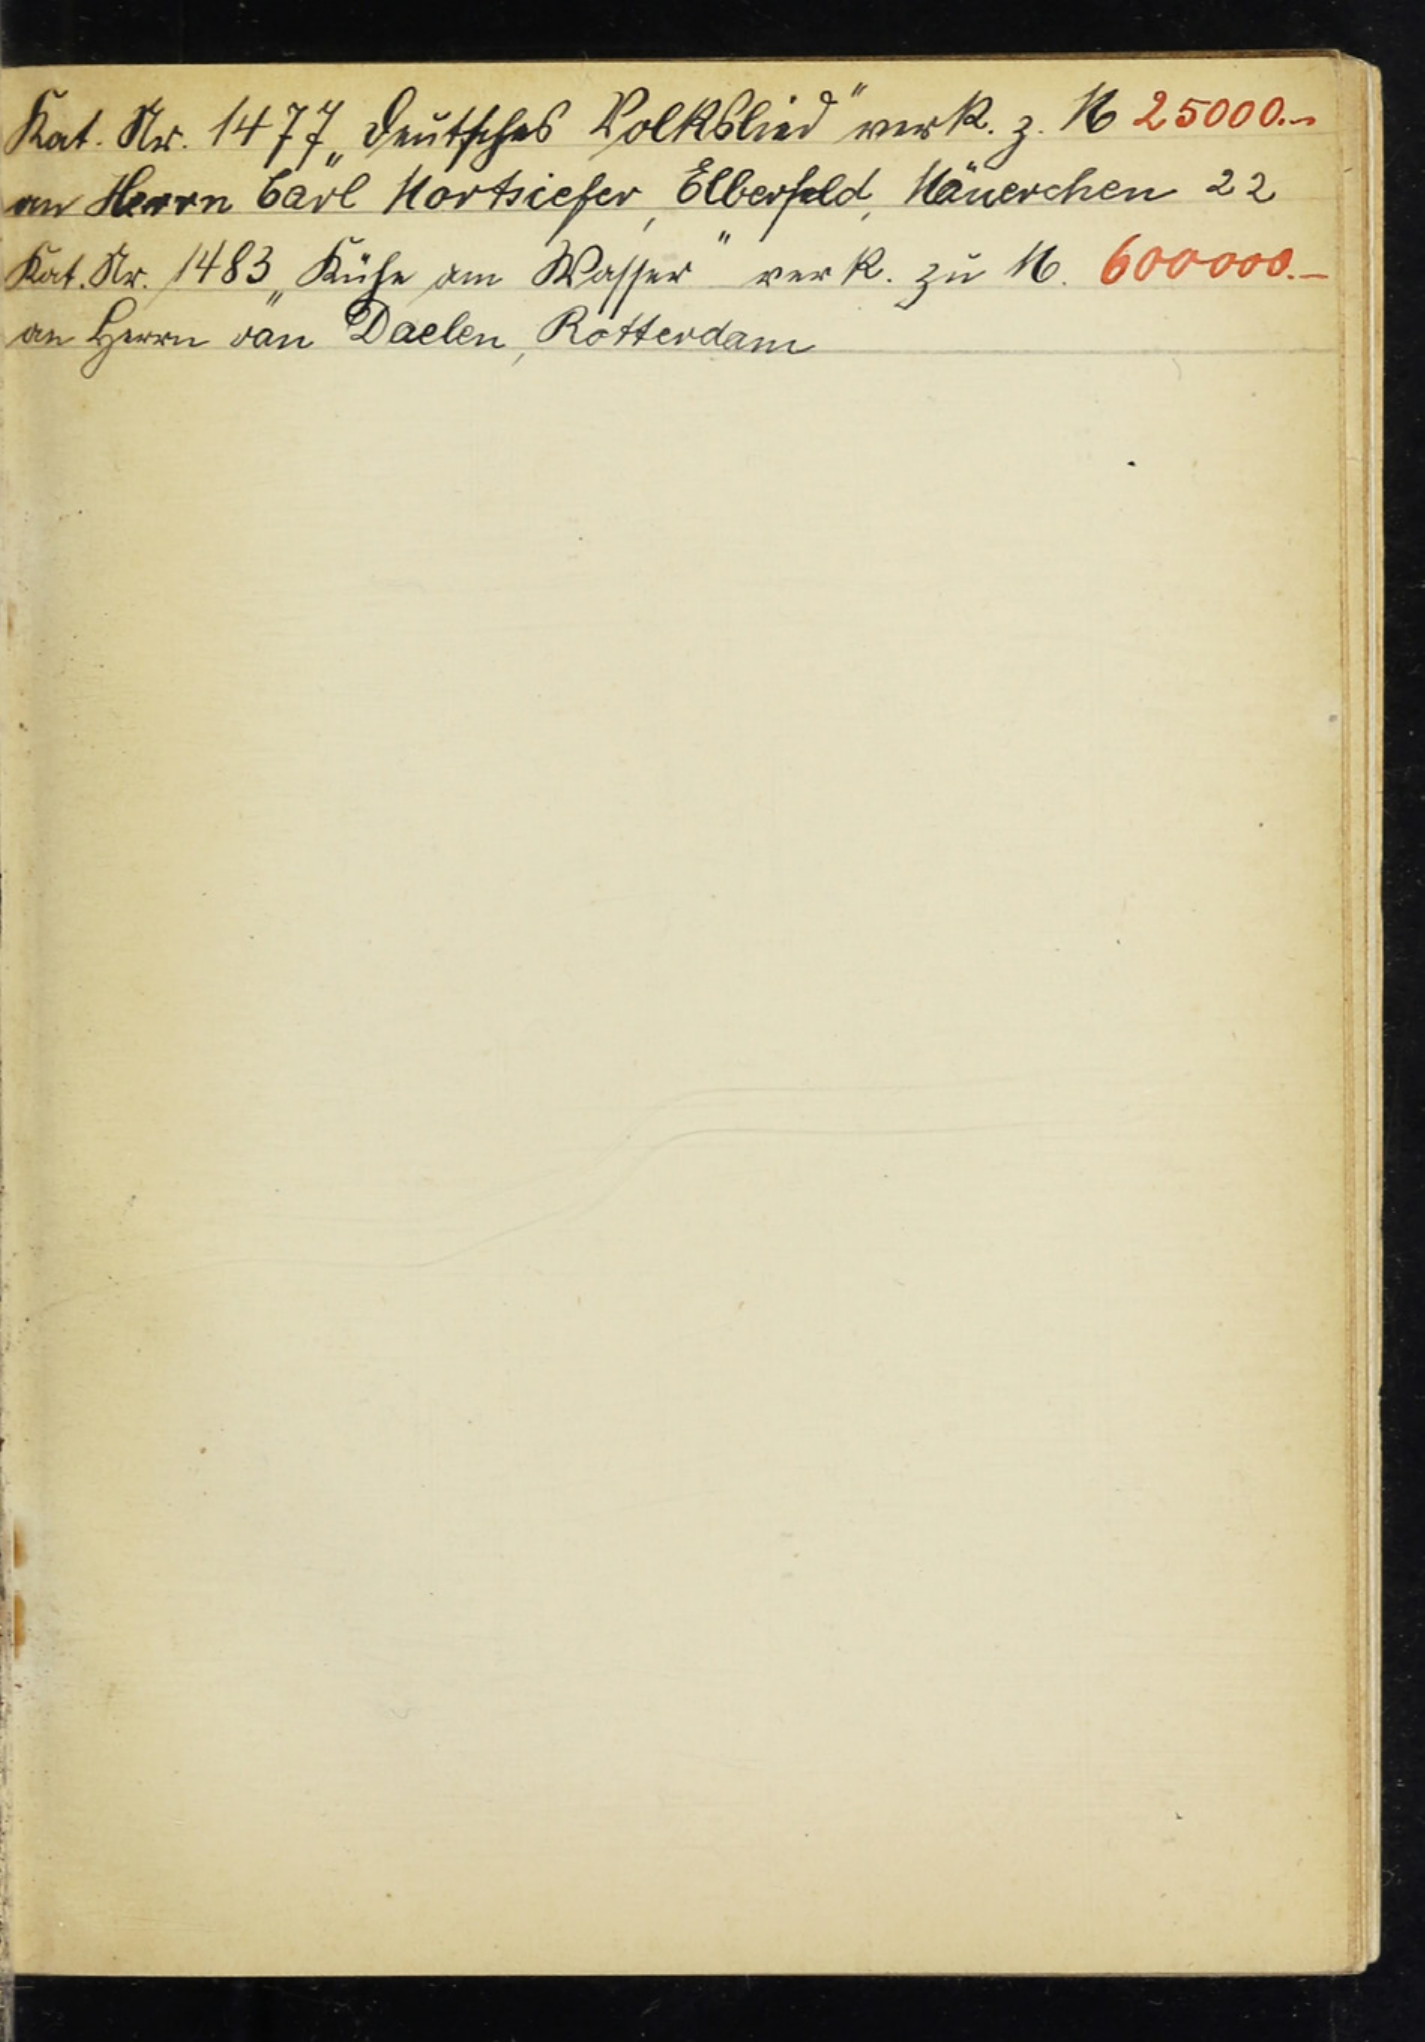 Kat. Nr. 1477 „Deutsches Volkslied" verk. z. M 25000.–
an Herrn Carl Hortsiefer, Elberfeld, Mäuerchen 22
Kat. Nr. 1483 „Kühe am Wasser" verk. zu M. 600000.–
an Herrn van Daelen, Rotterdam